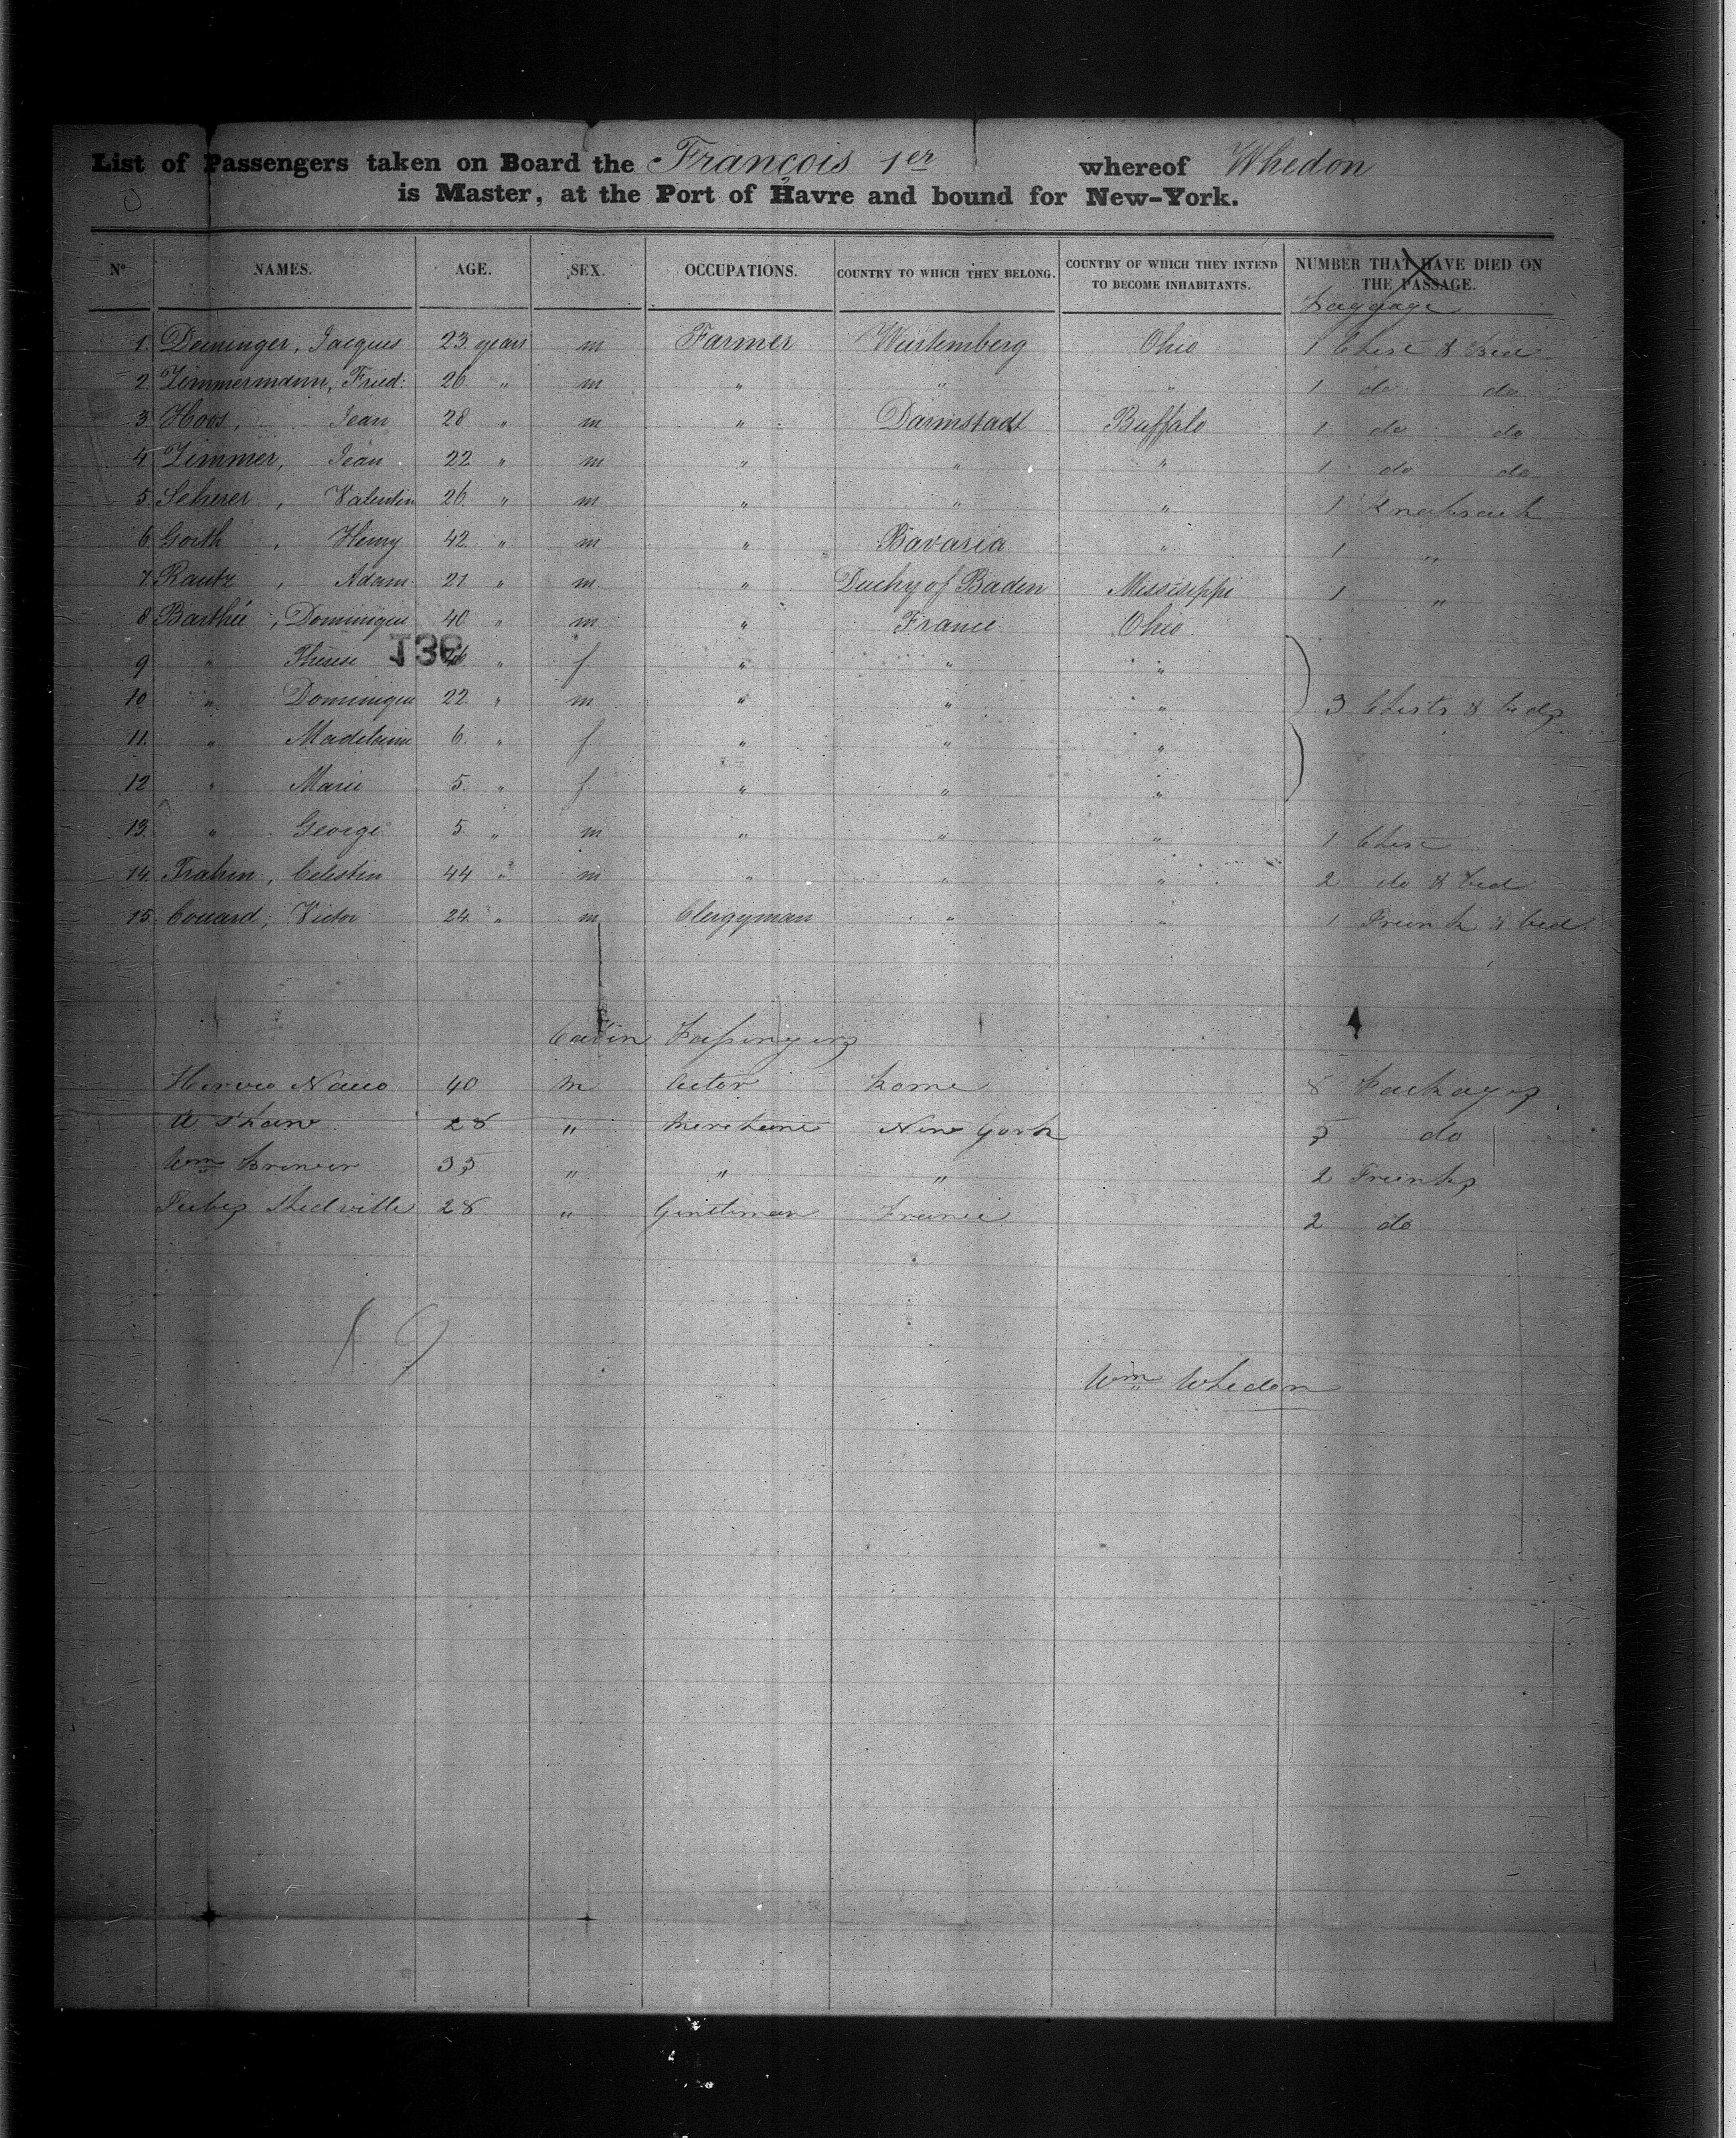 List of Passengers taken on Board the François 1er whereof Whedon
is Master, at the Port of Havre and bound for New-York.
No NAMES. AGE. SEX. OCCUPATIONS. COUNTRY TO WHICH THEY BELONG. COUNTRY OF WHICH THEY INTEND TO BECOME INHABITANTS. NUMBER THAT HAVE DIED ON THE PASSAGE.
Baggage
1. Deininger, Jacques 23 years m Farmer Würtemberg Ohio 1 Chest & Bed
2. Zimmermann, Fried: 26 " m " " " 1 do do
3. Hoos, Jean 28 " m " Darmstadt Buffalo 1 do do
4. Zimmer, Jean 22 " m " " " 1 do do
5. Scherer, Valentin 26 " m " " " 1 Knapsack
6. Henry 42 " m " Bavaria " 1 "
7. Rautz, Adam 21 " m " Duchy of Baden Mississippi 1 "
8. Barthié, Dominique 40 " m " France Ohio
136
9 " Thérèse " f " " "
10 " Dominique 22 " m " " " 3 Chests & beds
11. " Madelaine 6 " f " " "
12 " Marie 5 " f " " "
13. " George 5 " m " " " 1 Chest
14. Frahin, Celestin 44 " m " " " 2 do & bed
15. Couard, Victor 24 " m Clergyman " " 1 Trunk & bed
Cabin Passengers
Hervio Nano 40 m Actor Rome 8 Packages
A Shaw 28 " Merchant New York 5 do
Wm Brewer 35 " " " 2 Trunks
28 " Gentleman France 2 do
19
Wm Whedon